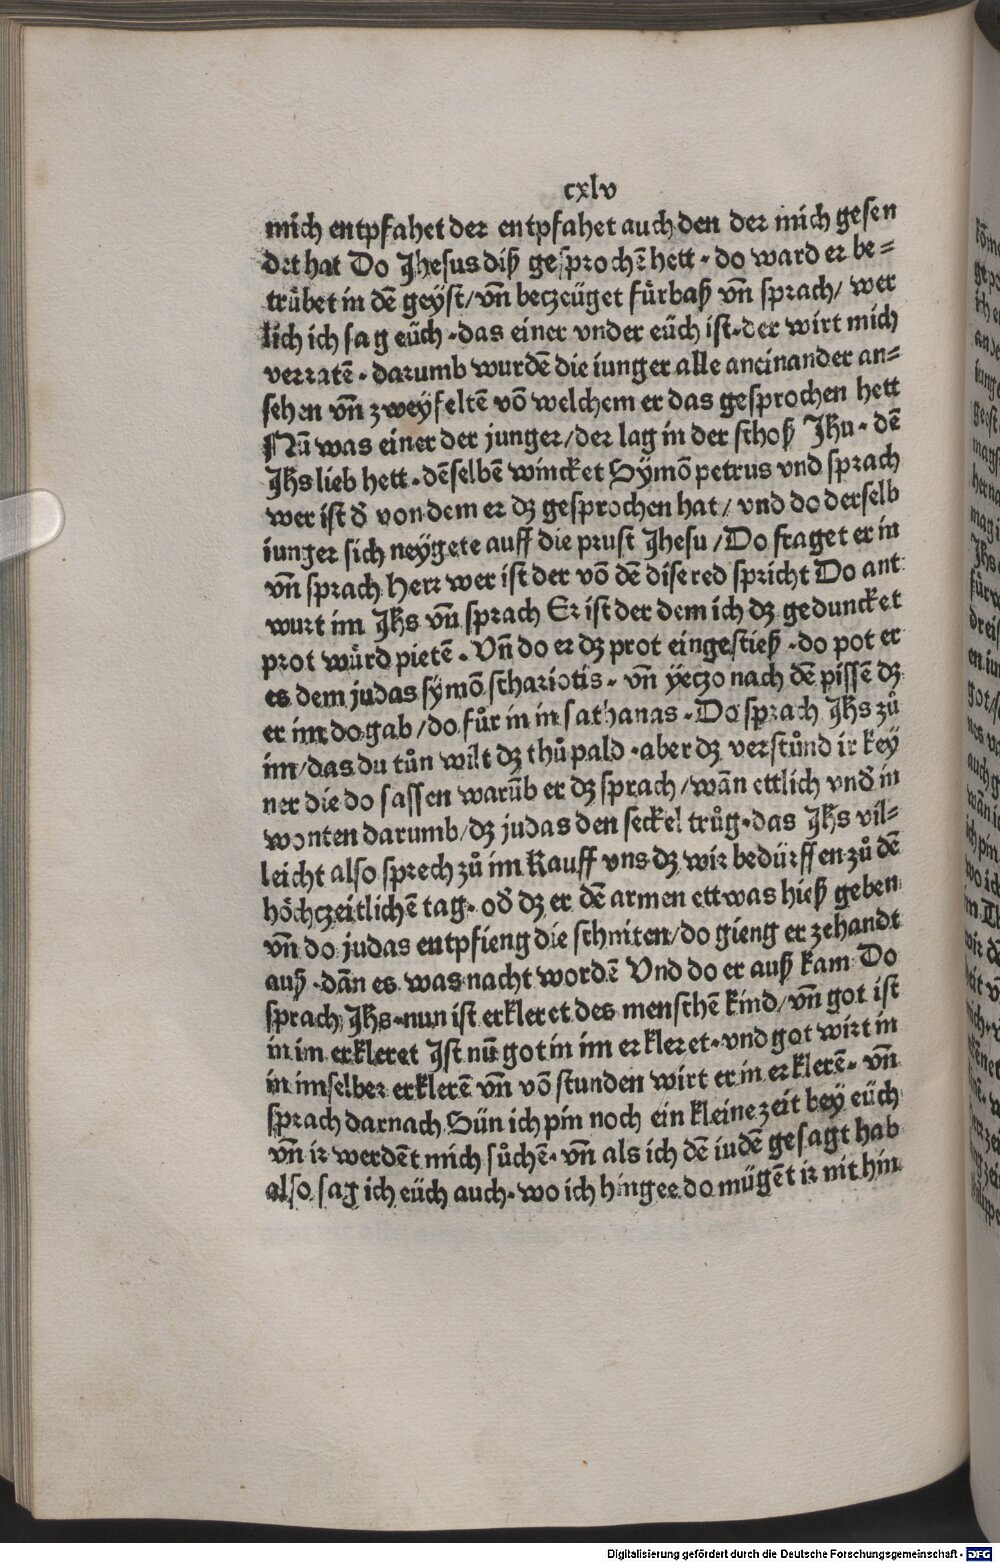 cxlv
mich entpfahet der entpfahet auch den der mich gesen
det hat Do Jhesus diß gesprochē hett · do ward er be=
trübet in dē geÿst/ vn̄ beczeüget fürbaß vn̄ sprach/ wer
lich ich sag eüch · das einer vnder eüch ist · der wirt mich
verratē · darumb wurdē die iunger alle aneinander an=
sehen vn̄ zweÿfeltē vō welchem er das gesprochen hett
Nū was einer der junger/ der lag in der schoß Jhu · dē
Jhs lieb hett · dēselben wincket Sÿmō petrus vnd sprach
wer ist d̄ von dem er dʒ gesprochen hat/ vnd do derselb
iunger sich neÿgete auff die prust Jhesu/ Do fraget er in
vn̄ sprach Herr wer ist der vō dē dise red spricht Do ant
wurt im Jhs vn̄ sprach Er ist der dem ich dʒ geduncket
prot würd pietē · Vn̄ do er dʒ prot eingestieß · do pot er
es dem judas sÿmō schariotis · vn̄ ÿeczo nach dē pissē dʒ
er im do gab/ do fůr in in sathanas · Do sprach Jhs zů
im/ das du tůn wilt dʒ thů pald · aber dʒ verstůnd ir keÿ
ner die do sassen warūb er dʒ sprach/ wān ettlich vnd̄ in
wonten darumb/ dʒ judas den seckel trůg · das Jhs vil=
leicht also sprech zů im Kauff vns dʒ wir bedürffen zů dē
höchczeitlichē tag · od̄ dʒ er dē armen ettwas hieß geben
vn̄ do judas entpfieng die schniten/ do gieng er zehandt
auß · dān es was nacht wordē Vnd do er auß kam Do
sprach Jhs · nun ist erkleret des menschē kind/ vn̄ got ist
in im erkleret Ist nū got in im erkleret · vnd got wirt in
in imselber erklerē vn̄ vō stunden wirt er in erklerē · vn̄
sprach darnach Sün ich pin noch ein kleine zeit beÿ eüch
vn̄ ir werdēt mich sůchē · vn̄ als ich dē iudē gesagt hab
also sag ich eüch auch · wo ich hingee do mügēt ir nit hin
Digitalisierung gefördert durch die Deutsche Forschungsgemeinschaft - DFG